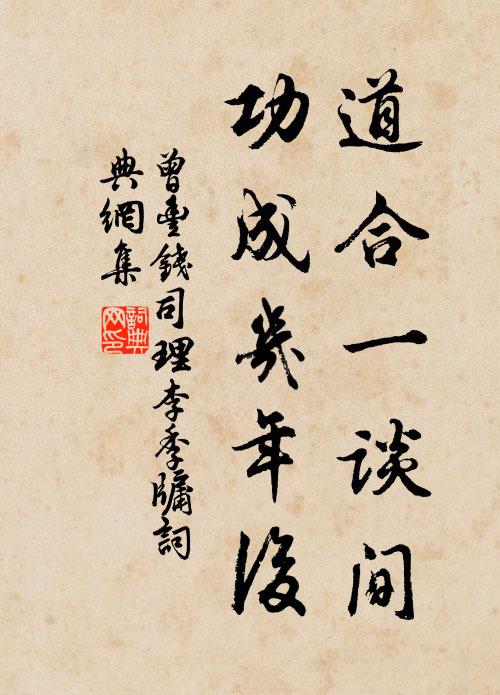 道合一谈间
功成几年後
曾豐錢司理李季牖詞
典網集
詞典
网印